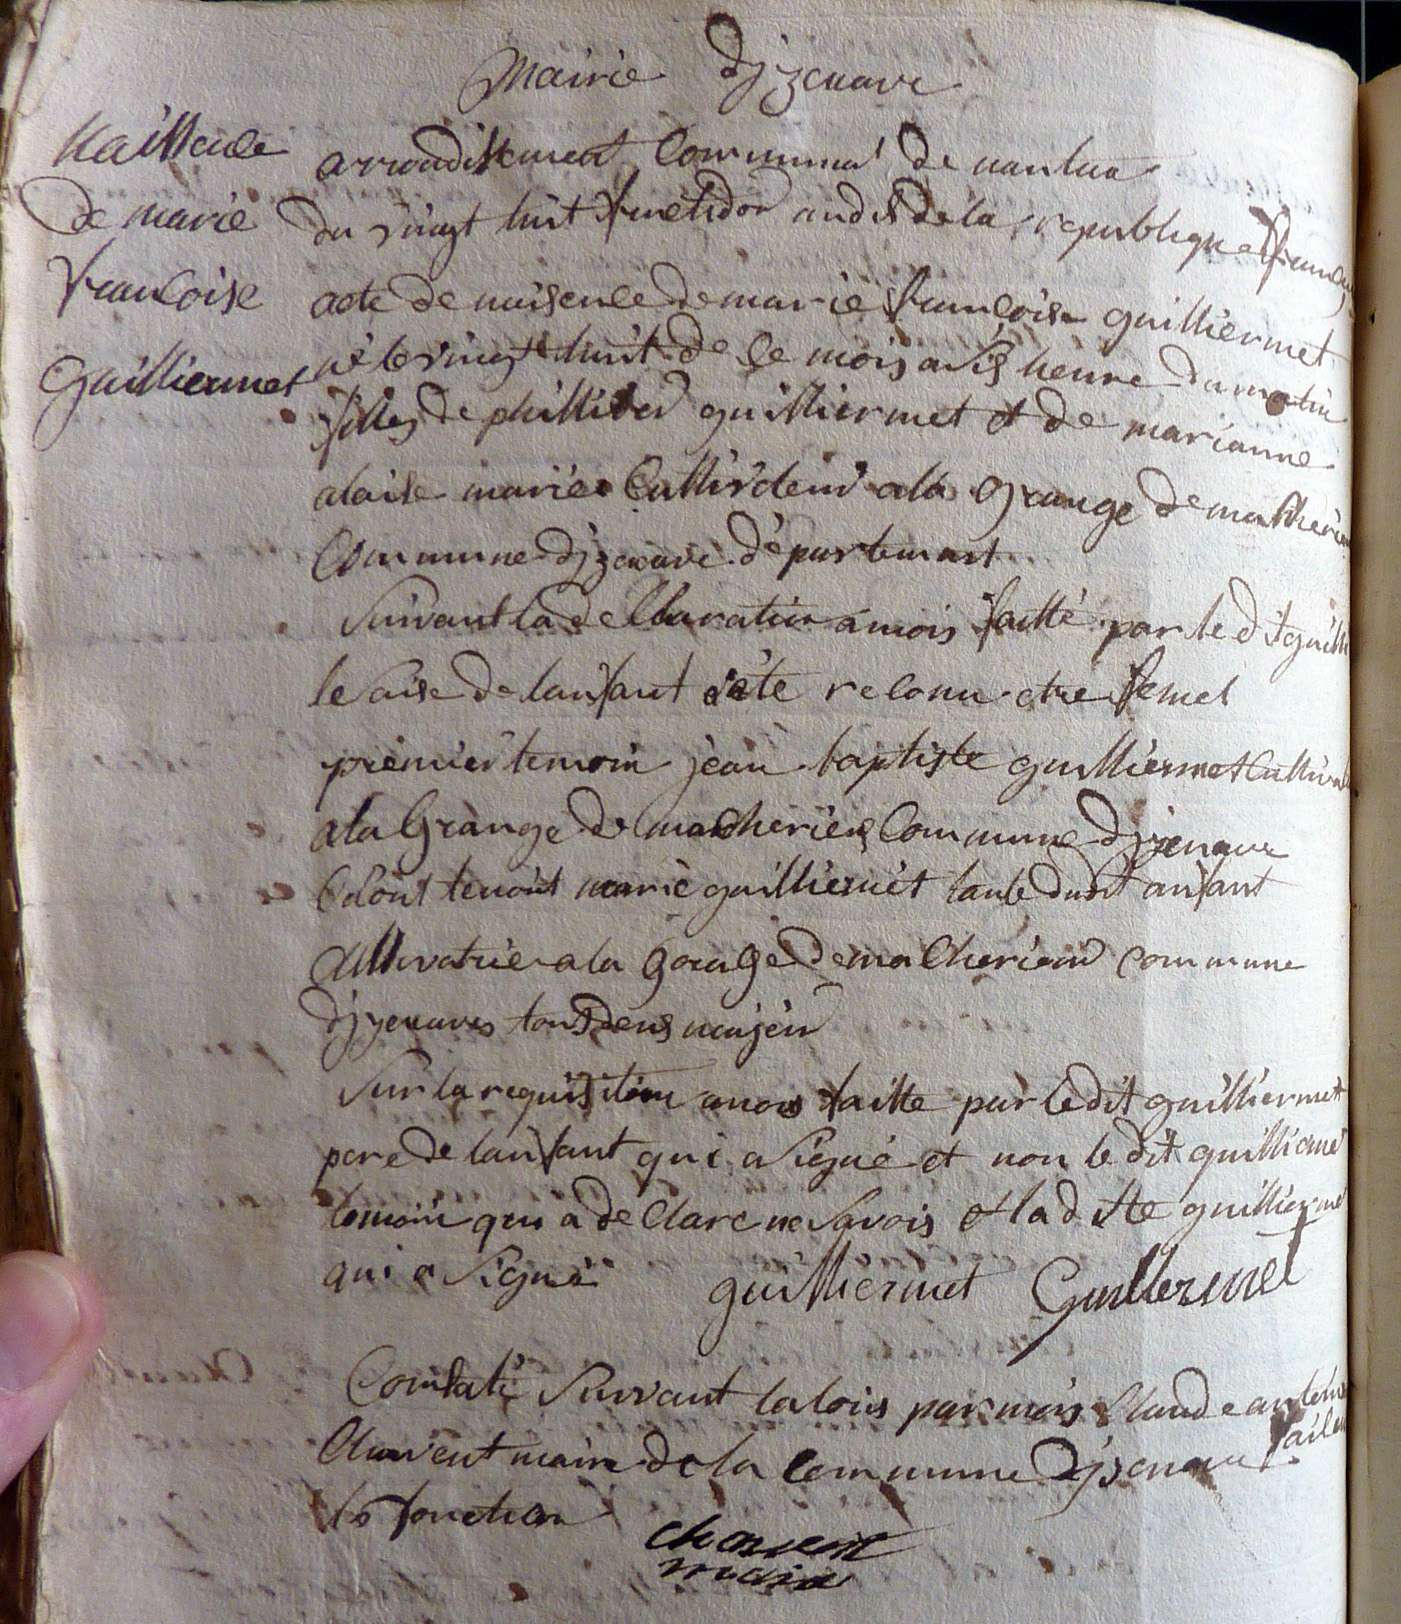 Mairie Djzenave
Naissence
de marie
francoise
Guilliermet
arrondissement Communnal de nantua
du vingt huit fructidor an dix de la republique francaise
acte de naisence de marie francoise guilliermet
né le vingt huit de ce mois a six heure du matin
filles de phillibed guilliermet et de marianne
alaise mariée a la Grange de macheriau
Commune djzenave departemant
Suivant la declaration a mois faitté par le dit guilli
le saixe de lanfant a été reconu etre femel
premier temoin jean baptiste guilliermet Cultivat
a la Grange de macherieu Commune djzenave
segont temoint marie guilliermet tante dudit anfant
Cultivatrice a la Grange de macherieau commune
djzenaves tous deus majeur
Sur la requisition a nous faitte par le dit guilliermet
pere de lanfant qui a signé et non le dit guilliermet
temoin qui a de Claré ne Savois et la ditte guilliermet
qui a Signé guilliermet Guillermet
Constaté Suivant la lois par mois Claude antoine
Chavent maire de la commune djzenave faisant
les fonction
chavent
maire